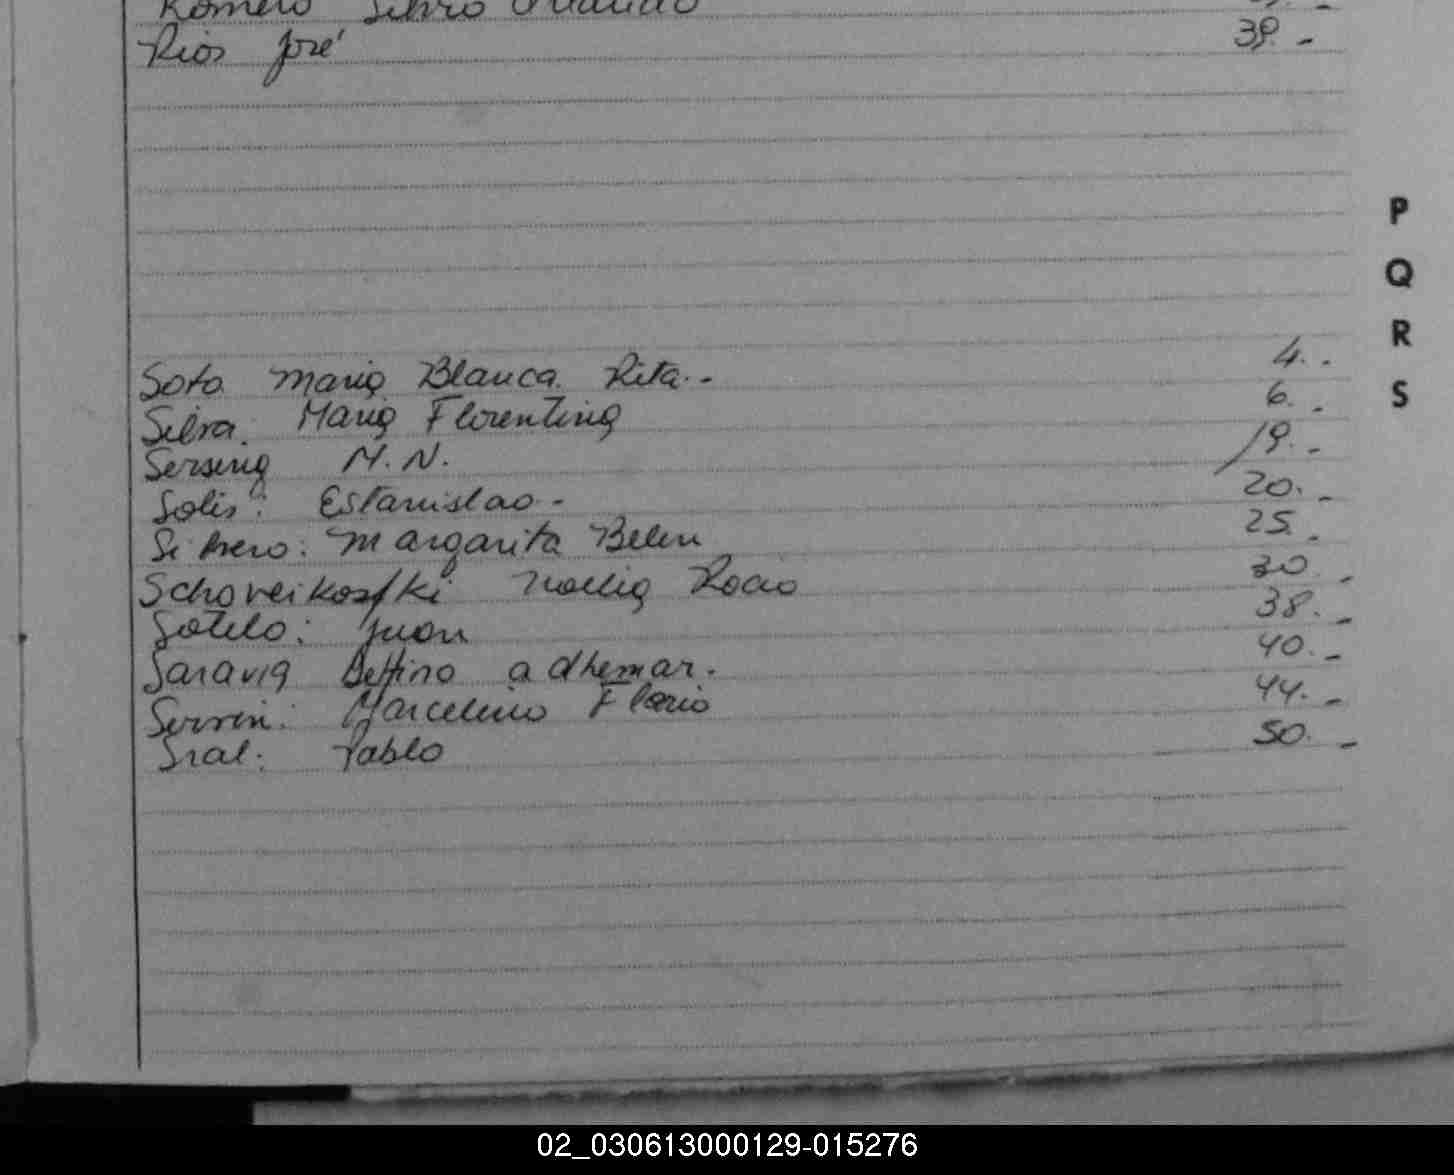 Romero Silvio
Rios José 39.-
P
Q
R
S
Soto Maria Blanca Rita.- 4.-
Silva: Maria Florentina 6.-
M.N. 19.-
Solis: Estanislao.- 20.-
Margarita Belen 25.-
Noelia Rocio 30.-
Sotelo: Juan 38.-
Saravia Bettino adhemar. 40.-
Servin: Marcelino Flavio 44.-
Sral: Pablo 50.-
02_030613000129-015276